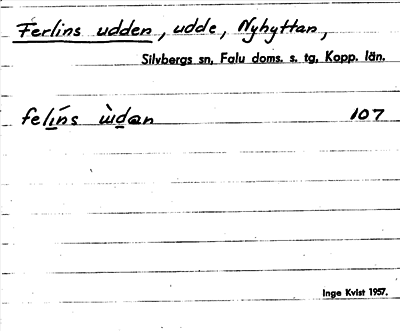 Ferlins udden, udde, Nyhyttan,
Silvbergs sn, Falu doms. s. tg, Kopp. län.
felíns ùdan 107
Inge Kvist 1957.